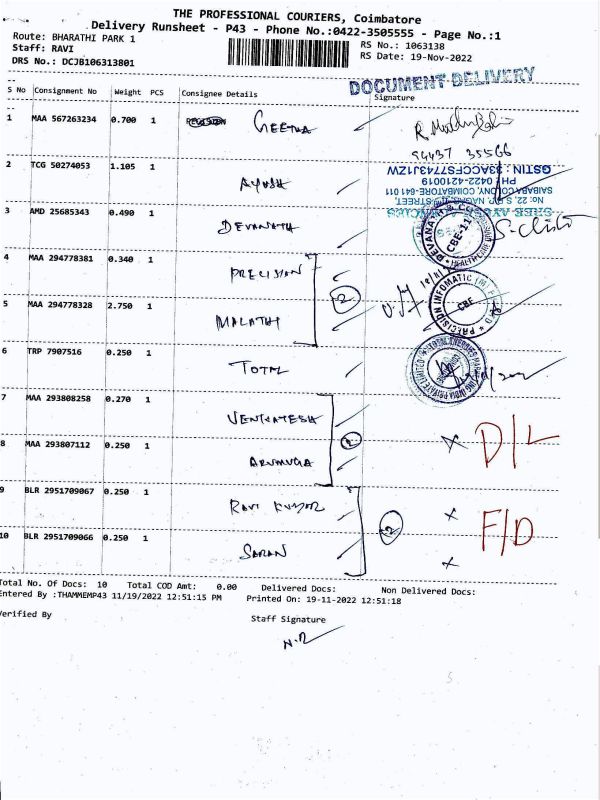 THE PROFESSIONAL COURIERS, Coimbatore
Delivery Runsheet - P43 - Phone No.:0422-3505555 - Page No.:1
Route: BHARATHI PARK 1
RS No.: 1063138
Staff: RAVI
RS Date: 19-Nov-2022
DRS No.: DCJB106313801
DOCUMENT DELIVERY
S No Consignment No Weight PCS Consignee Details Signature
1 MAA 567263234 0.700 1 GEETHA
94437 35566
2 TCG 50274053 1.105 1 AYUSH
GSTIN: 33ACCFS7743J1ZW
PH: 0422-4210019
SAIBABA COLONY, COIMBATORE-641 011
3 AMD 25685343 0.490 1 DEVANATH
CBE-11
4 MAA 294778381 0.340 1 PRECISION
2
5 MAA 294778328 2.750 1 MALATHI
PRECISION INFOMATIC
CBE
6 TRP 7907516 0.250 1 TOTAL
7 MAA 293808258 0.270 1 VENKATESH
2
D/L
8 MAA 293807112 0.250 1 ARUMUGA
9 BLR 2951709067 0.250 1 RAVI KUMAR
2
F/D
10 BLR 2951709066 0.250 1 SARAN
Total No. Of Docs: 10 Total COD Amt: 0.00 Delivered Docs: Non Delivered Docs:
Entered By :THAMMEMP43 11/19/2022 12:51:15 PM Printed On: 19-11-2022 12:51:18
Verified By
Staff Signature